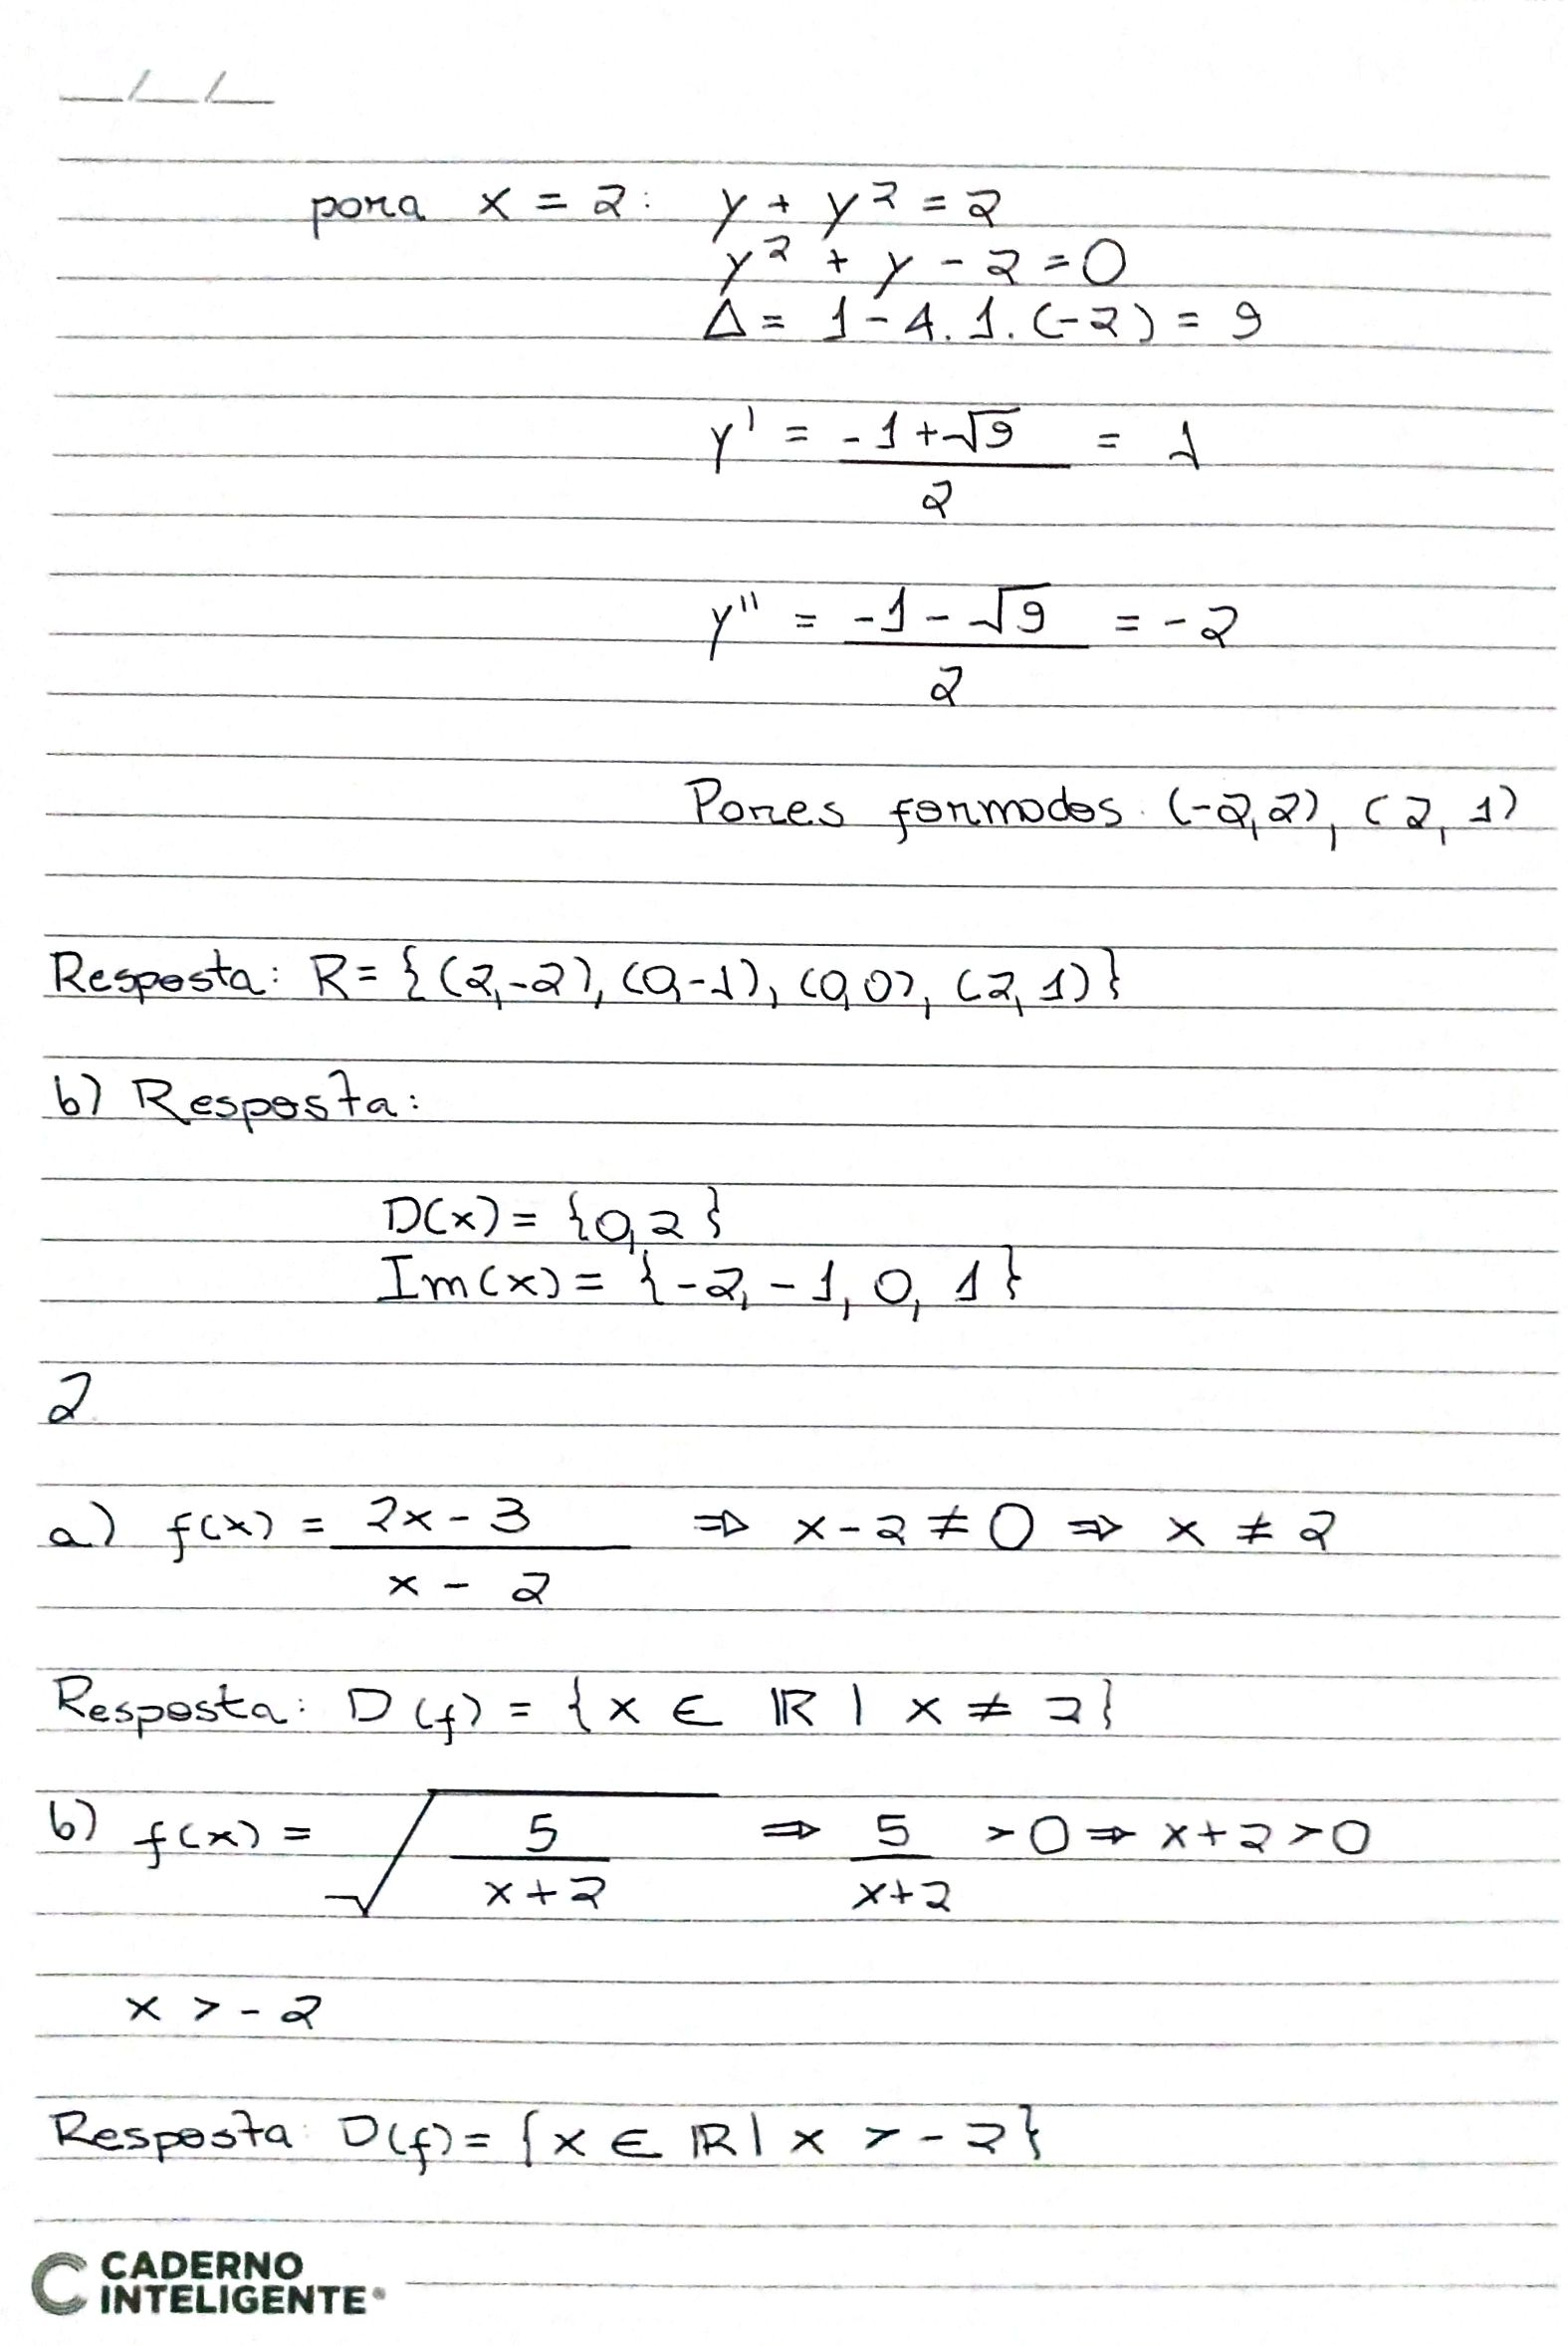 __/__/__
para x = 2: y + y² = 2
y² + y - 2 = 0
Δ = 1 - 4 . 1 . (-2) = 9
y' = (-1 + √9)/2 = 1
y'' = (-1 - √9)/2 = -2
Pares formados: (-2, 2), (2, 1)
Resposta: R = {(2, -2), (0, -1), (0, 0), (2, 1)}
b) Resposta:
D(x) = {0, 2}
Im(x) = {-2, -1, 0, 1}
2
a) f(x) = (2x - 3)/(x - 2) ⇒ x - 2 ≠ 0 ⇒ x ≠ 2
Resposta: D(f) = {x ∈ ℝ | x ≠ 2}
b) f(x) = √(5/(x+2)) ⇒ 5/(x+2) > 0 ⇒ x + 2 > 0
x > -2
Resposta: D(f) = {x ∈ ℝ | x > -2}
CADERNO
INTELIGENTE®